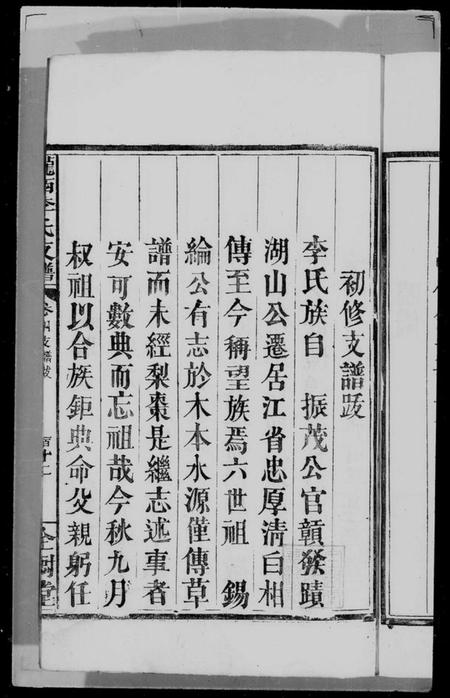 初修支譜跋
李氏族自　振茂公官贛發蹟
湖山公遷居江省忠厚清白相
傳至今稱望族焉六世祖　錫
綸公有志於木本水源僅傳草
譜而未經梨棗是繼志述事者
安可數典而忘祖哉今秋九月
叔祖以合族鉅典命父親躬任
隴西李氏支譜
卷四支譜跋